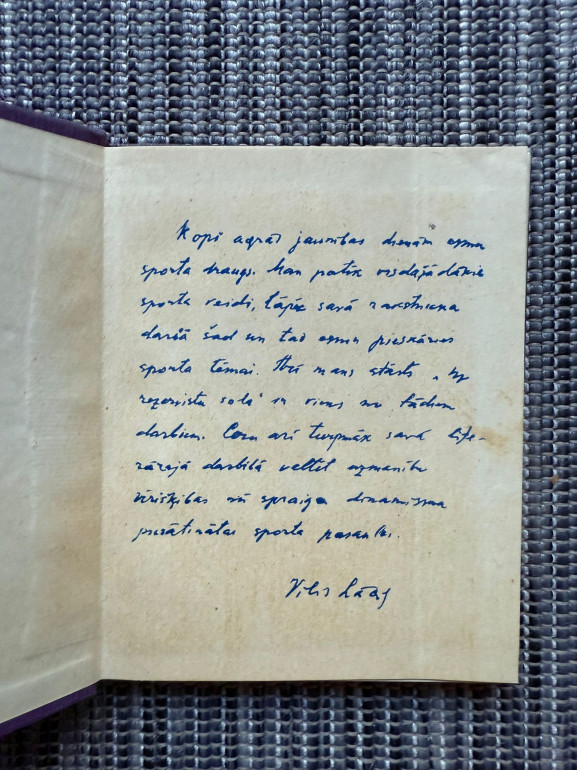 Kopš agrās jaunības dienām esmu
sporta draugs. Man patīk visdažādākie
sporta veidi, tāpēc savā rakstnieka
darbā šad un tad esmu pieskāries
sporta tēmai. Arī mans stāsts „Uz
rezervistu sola" ir viens no tādiem
darbiem. Ceru arī turpmāk savā lite-
rārajā darbībā veltīt uzmanību
vīrišķības un spraiga dinamisma
piesātinātai sporta pasaulei.
Vilis Lācis